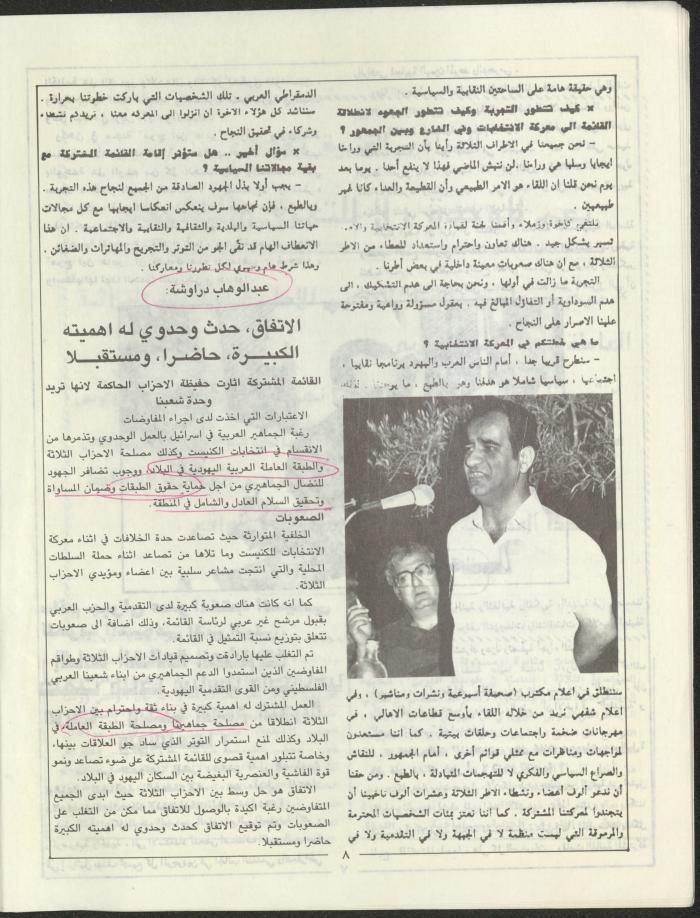 وهي حقيقة هامة على الساحتين النقابية والسياسية .
× كيف تتطور التجربة وكيف تتطور الجهود لانطلاقة
القائمة الى معركة الانتخابات وفي الشارع وبين الجمهور ؟
– نحن جميعنا في الاطراف الثلاثة رأينا بأن التجربة التي وراءنا
ايجابا وسلبا هي وراءنا . لن ننبش الماضي فهذا لا ينفع أحدا . يوما بعد
يوم نحن قلنا ان اللقاء هو الامر الطبيعي وأن القطيعة والعداء كانا غير
طبيعيين .
نلتقي كإخوة وزملاء وأقمنا لجنة لقيادة المعركة الانتخابية والامور
تسير بشكل جيد . هناك تعاون واحترام واستعداد للعطاء من الاطر
الثلاثة ، مع ان هناك صعوبات معينة داخلية في بعض أطرنا .
التجربة ما زالت في أولها ، ونحن بحاجة الى هدم التشكيك ، الى
هدم السوداوية أو التفاؤل المبالغ فيه . بعقول مسؤولة وواعية ومفتوحة
علينا الاصرار على النجاح .
× ما هي خطتكم في المعركة الانتخابية ؟
– سنطرح قريبا جدا ، أمام الناس العرب واليهود برنامجا نقابيا ،
اجتماعيا ، سياسيا شاملا هو هدفنا وهو بالطبع ، ما يوحدنا . لذلك
سننطلق في اعلام مكتوب (صحيفة أسبوعية ونشرات ومناشير) ، وفي
اعلام شفهي نريد من خلاله اللقاء بأوسع قطاعات الاهالي ، في
مهرجانات ضخمة واجتماعات وحلقات بيتية . كما اننا مستعدون
لمواجهات ومناظرات مع ممثلي قوائم أخرى ، أمام الجمهور . للنقاش
والصراع السياسي والفكري لا للتهجمات المتبادلة . بالطبع . ومن حقنا
أن ندعو ألوف أعضاء ونشطاء الاطر الثلاثة وعشرات ألوف ناخبينا أن
يتجندوا لمعركتنا المشتركة . كما أننا نعتز بمئات الشخصيات المحترمة
والمرموقة التي ليست منظمة لا في الجبهة ولا في التقدمية ولا في
الدمقراطي العربي . تلك الشخصيات التي باركت خطوتنا بحرارة .
سنناشد كل هؤلاء الاخوة ان انزلوا الى المعركة معنا ، نريدكم نشطاء
وشركاء في تحقيق النجاح .
× سؤال أخير .. هل ستؤثر إقامة القائمة المشتركة مع
بقية مجالاتنا السياسية ؟
– يجب أولا بذل الجهود الصادقة من الجميع لنجاح هذه التجربة .
وبالطبع ، فإن نجاحها سوف ينعكس انعكاسا ايجابيا مع كل مجالات
حياتنا السياسية والبلدية والثقافية والنقابية والاجتماعية . ان هذا
الانعطاف الهام قد نقّى الجو من التوتر والتجريح والمهاترات والضغائن .
وهذا شرط هام وحيوي لكل تطورنا ومعاركنا .
عبدالوهاب دراوشة:
الاتفاق، حدث وحدوي له اهميته
الكبيــرة، حاضرا، ومستقبلا
القائمة المشتركة اثارت حفيظة الاحزاب الحاكمة لانها تريد
وحدة شعبنا
الاعتبارات التي اخذت لدى اجراء المفاوضات
رغبة الجماهير العربية في اسرائيل بالعمل الوحدوي وتذمرها من
الانقسام في انتخابات الكنيست وكذلك مصلحة الاحزاب الثلاثة
والطبقة العاملة العربية اليهودية في البلاد ووجوب تضافر الجهود
للنضال الجماهيري من اجل حماية حقوق الطبقات وضمان المساواة
وتحقيق السلام العادل والشامل في المنطقة.
الصعوبات
الخلفية المتوارثة حيث تصاعدت حدة الخلافات في اثناء معركة
الانتخابات للكنيست وما تلاها من تصاعد اثناء حملة السلطات
المحلية والتي انتجت مشاعر سلبية بين اعضاء ومؤيدي الاحزاب
الثلاثة.
كما انه كانت هناك صعوبة كبيرة لدى التقدمية والحزب العربي
بقبول مرشح غير عربي لرئاسة القائمة، وذلك اضافة الى صعوبات
تتعلق بتوزيع نسبة التمثيل في القائمة.
تم التغلب عليها بارادقت وتصميم قيادات الاحزاب الثلاثة وطواقم
المفاوضين الذين استمدوا الدعم الجماهيري من ابناء شعبنا العربي
الفلسطيني ومن القوى التقدمية اليهودية.
العمل المشترك له اهمية كبيرة في بناء ثقة واحترام بين الاحزاب
الثلاثة انطلاقا من مصلحة جماهيرنا ومصلحة الطبقة العاملة، في
البلاد وكذلك لمنع استمرار التوتر الذي ساد جو العلاقات بينها،
وخاصة تتبلور اهمية قصوى للقائمة المشتركة على ضوء تصاعد ونمو
قوة الفاشية والعنصرية البغيضة بين السكان اليهود في البلاد.
الاتفاق هو حل وسط بين الاحزاب الثلاثة حيث ابدى الجميع
المتفاوضين رغبة اكيدة بالوصول للاتفاق مما مكن من التغلب على
الصعوبات وتم توقيع الاتفاق كحدث وحدوي له اهميته الكبيرة
حاضرا ومستقبلا.
٨